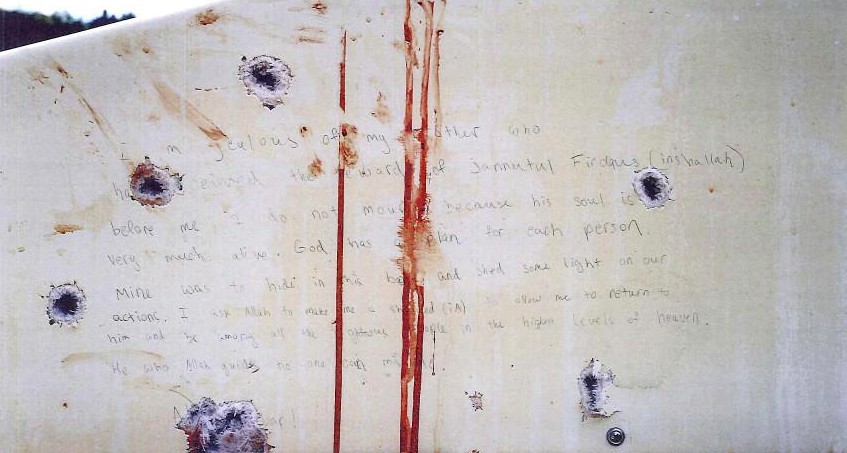 I'm jealous of my other who
ha received the reward of jannutul Firdaus (inshallah)
before me. I do not mourn because his soul is
very much alive. God has a plan for each person.
Mine was to hide in this boat and shed some light on our
actions. I ask Allah to make me a shahied (iA) to allow me to return to
him and be among all the righteous people in the highest levels of heaven.
He who Allah guides no one can
A ar!